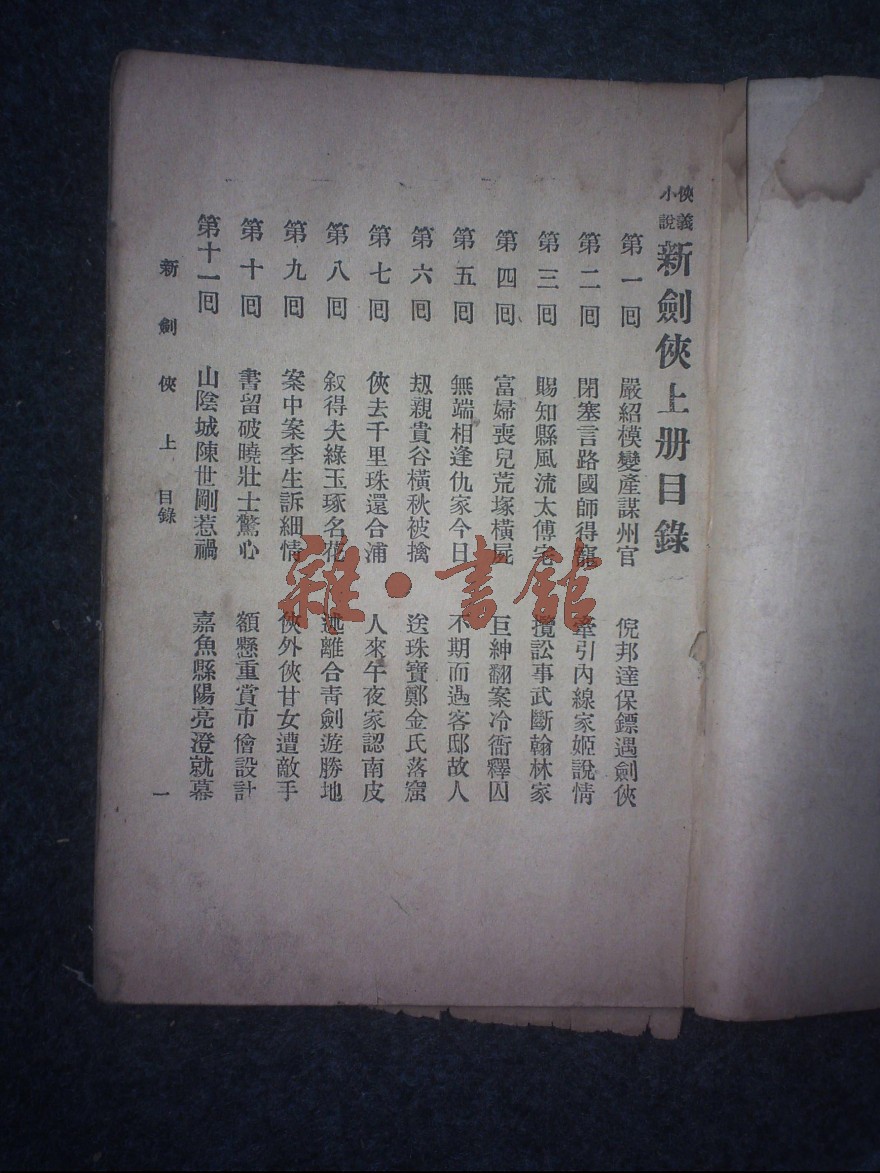 俠義小說 新劍俠上册目錄
第一回 嚴紹模變產謀州官 倪邦達保鏢遇劍俠
第二回 閉塞言路國師得寵 牽引內線家姬說情
第三回 賜知縣風流太傅宅 攬訟事武斷翰林家
第四回 富婦喪兒荒塚橫屍 巨紳翻案冷衙釋囚
第五回 無端相逢仇家今日 不期而遇客邸故人
第六回 刼親貴谷橫秋被擒 送珠寶鄭金氏落窟
第七回 俠去千里珠還合浦 人來午夜家認南皮
第八回 叙得失綠玉琢名花 述離合靑劍遊勝地
第九回 案中案李生訴細情 俠外俠甘女遭敵手
第十回 書留破曉壯士驚心 額懸重賞市儈設計
第十一回 山陰城陳世剛惹禍 嘉魚縣陽亮澄就幕
新劍俠 上 目錄 一
雜·書館